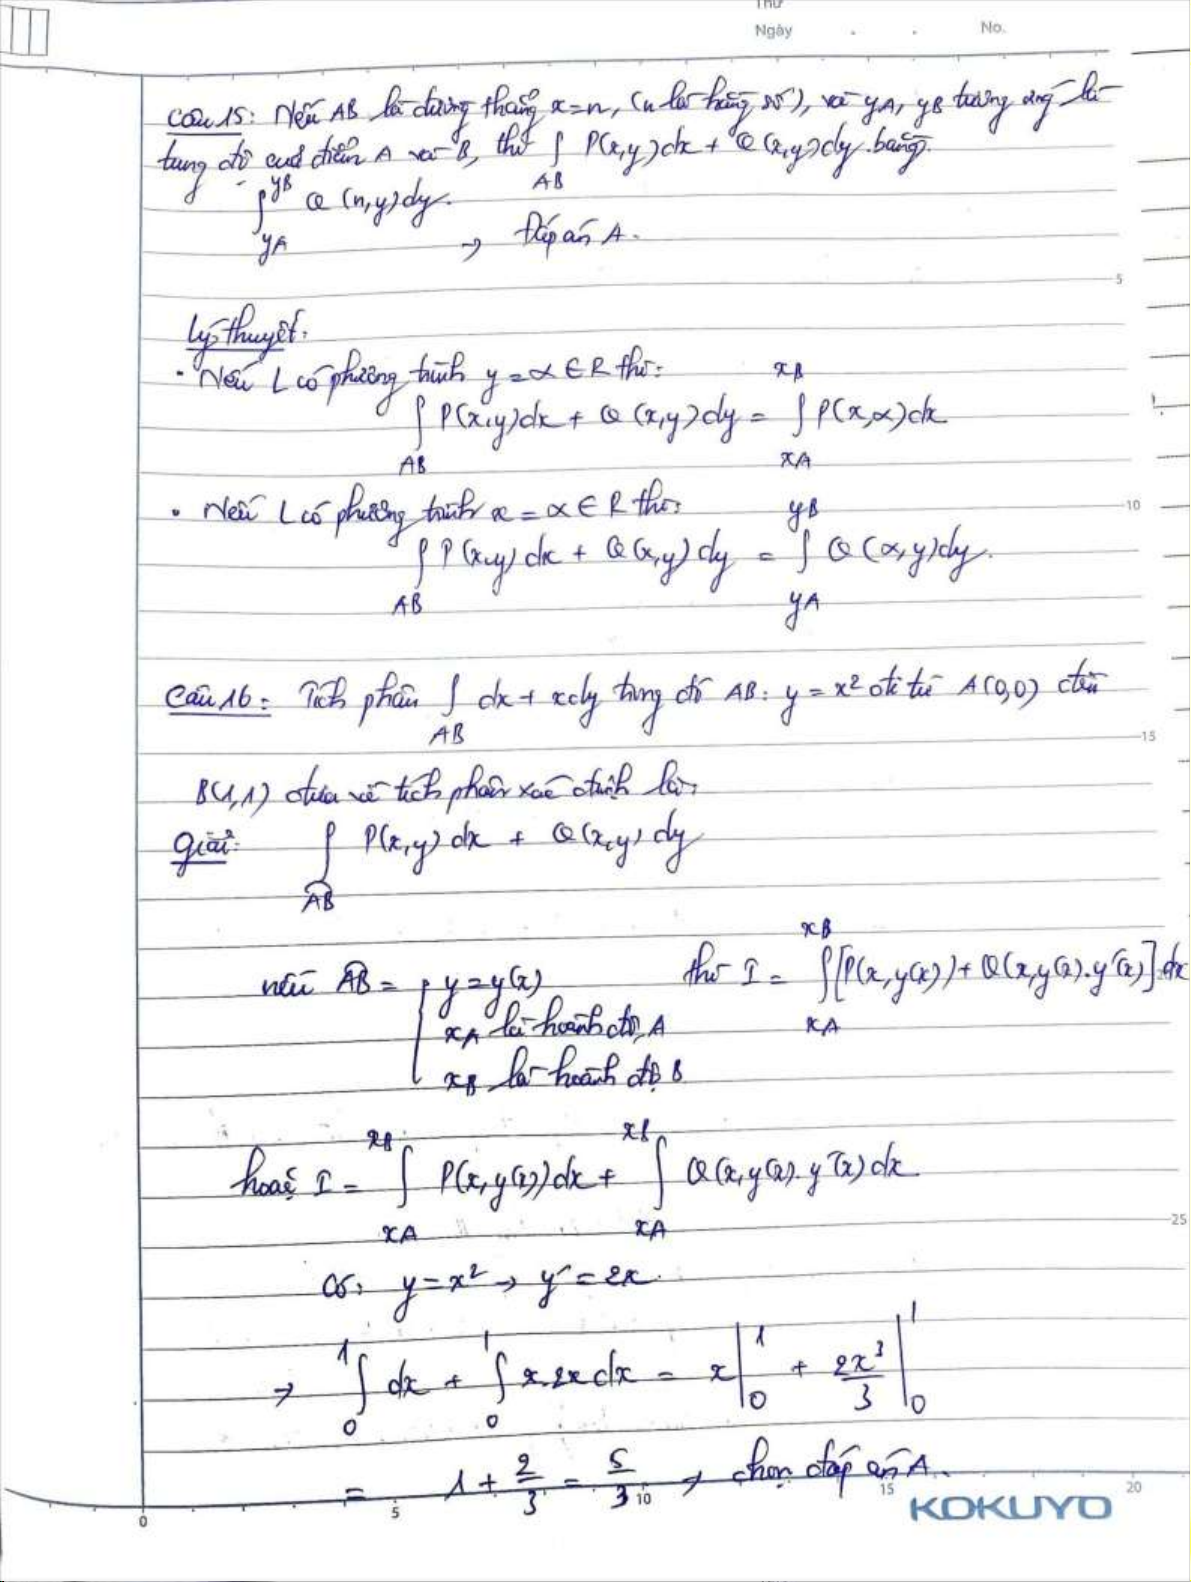 Thứ
Ngày . . No.
Câu 15: Nếu AB là đường thẳng x=n, (n là hằng số), và yA, yB tương ứng là
tung độ của điểm A và B, thì ∫AB P(x,y)dx + Q(x,y)dy bằng:
∫yA^yB Q(n,y)dy.
→ Đáp án A.
5
Lý thuyết:
• Nếu L có phương trình y=α∈R thì:
∫AB P(x,y)dx + Q(x,y)dy = ∫xA^xB P(x,α)dx
• Nếu L có phương trình x=α∈R thì:
10
∫AB P(x,y)dx + Q(x,y)dy = ∫yA^yB Q(α,y)dy.
Câu 16: Tích phân ∫AB dx + xdy trong đó AB: y=x² đi từ A(0,0) đến
15
B(1,1) đưa về tích phân xác định là:
Giải: ∫AB P(x,y)dx + Q(x,y)dy
nếu AB = { y=y(x) thì I = ∫xA^xB [P(x,y(x))+Q(x,y(x).y'(x)].dx
xA là hoành độ A
xB là hoành độ B
hoặc I = ∫xA^xB P(x,y(x))dx + ∫xA^xB Q(x,y(x).y'(x)dx
25
Có: y=x² → y'=2x.
→ ∫0^1 dx + ∫0^1 x.2x dx = x|0^1 + 2x³/3|0^1
= 1 + 2/3 = 5/3 → chọn đáp án A.
0 5 10 15 20
KOKUYO